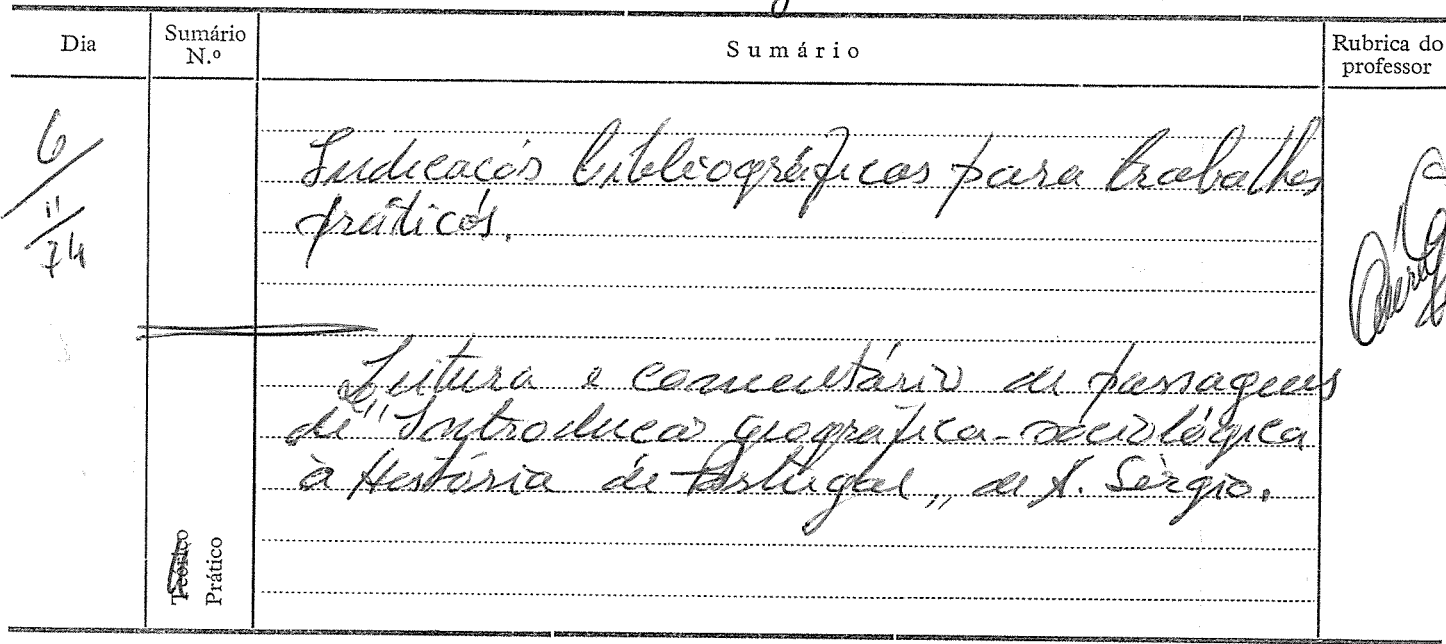 Dia
Sumário N.º
Sumário
Rubrica do professor
6/11/74
Indicacões bibliográficas para trabalhos
práticos.
Leitura e comentário de passagens
de "Introducao geográfica-sociológica
à História de Portugal,, de A. Sérgio.
Teórico
Prático